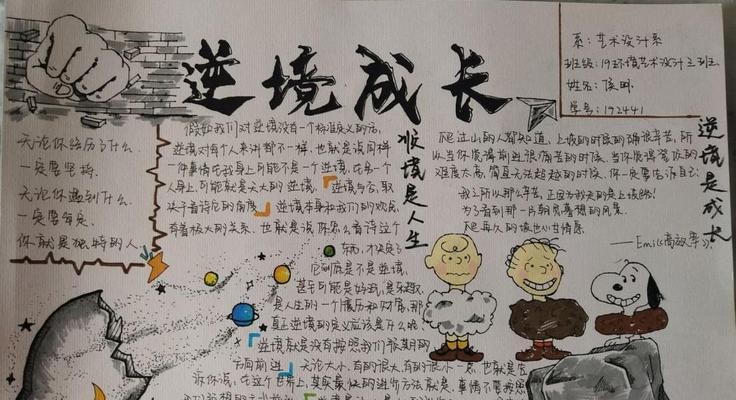 逆境成长
系：艺术设计系
班级：19环境艺术设计三班
姓名：
学号：192441
无论你经历了什么
一定要坚持.
无论你遇到什么
一定要笃定.
你就是独特的人.
假如我们对逆境没有一个标准定义的话,
逆境对每个人来讲都不一样，也就是说同样
一件事情在我身上可能不是一个逆境，在另一个
人身上，可能就是天大的逆境，逆境与否，取
决于看待它的角度 逆境本身和我们的观念,
有着极大的关系，也就是说你怎么看待这个
东西，才决定了
它到底是不是逆境,
甚至可能是好玩，是乐趣,
是人生的一个履历和财富，那
真正逆境的定义应该是什么呢,
逆境就是没有按照我们预期的
方向前进 无论大小，有的很大，有的很小一点，也就是
告诉你说，在这个世界上，其实最快的进步方法就是，事情不要按照
顺境是人生
爬过山的人都知道，上坡的时候的确很辛苦，所
以当你觉得前进很痛苦的时候，当你觉得驾驭的
难度太高，简直无法超越的时候，你一定要告诉自己：
我之所以那么辛苦，正因为我走的是上坡路！
为了看到那一片朝思暮想的风景，
爬再久的坡也心甘情愿
——Emil《高效率》
逆境是成长